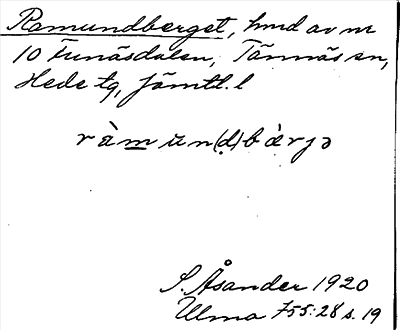 Ramundberget, hmd av nr
10 Funäsdalen, Tännäs sn,
Hede tg, Jämtl. l
ràmun(d)bàrjə
S. Åsander 1920
Ulma 755:28 s. 19